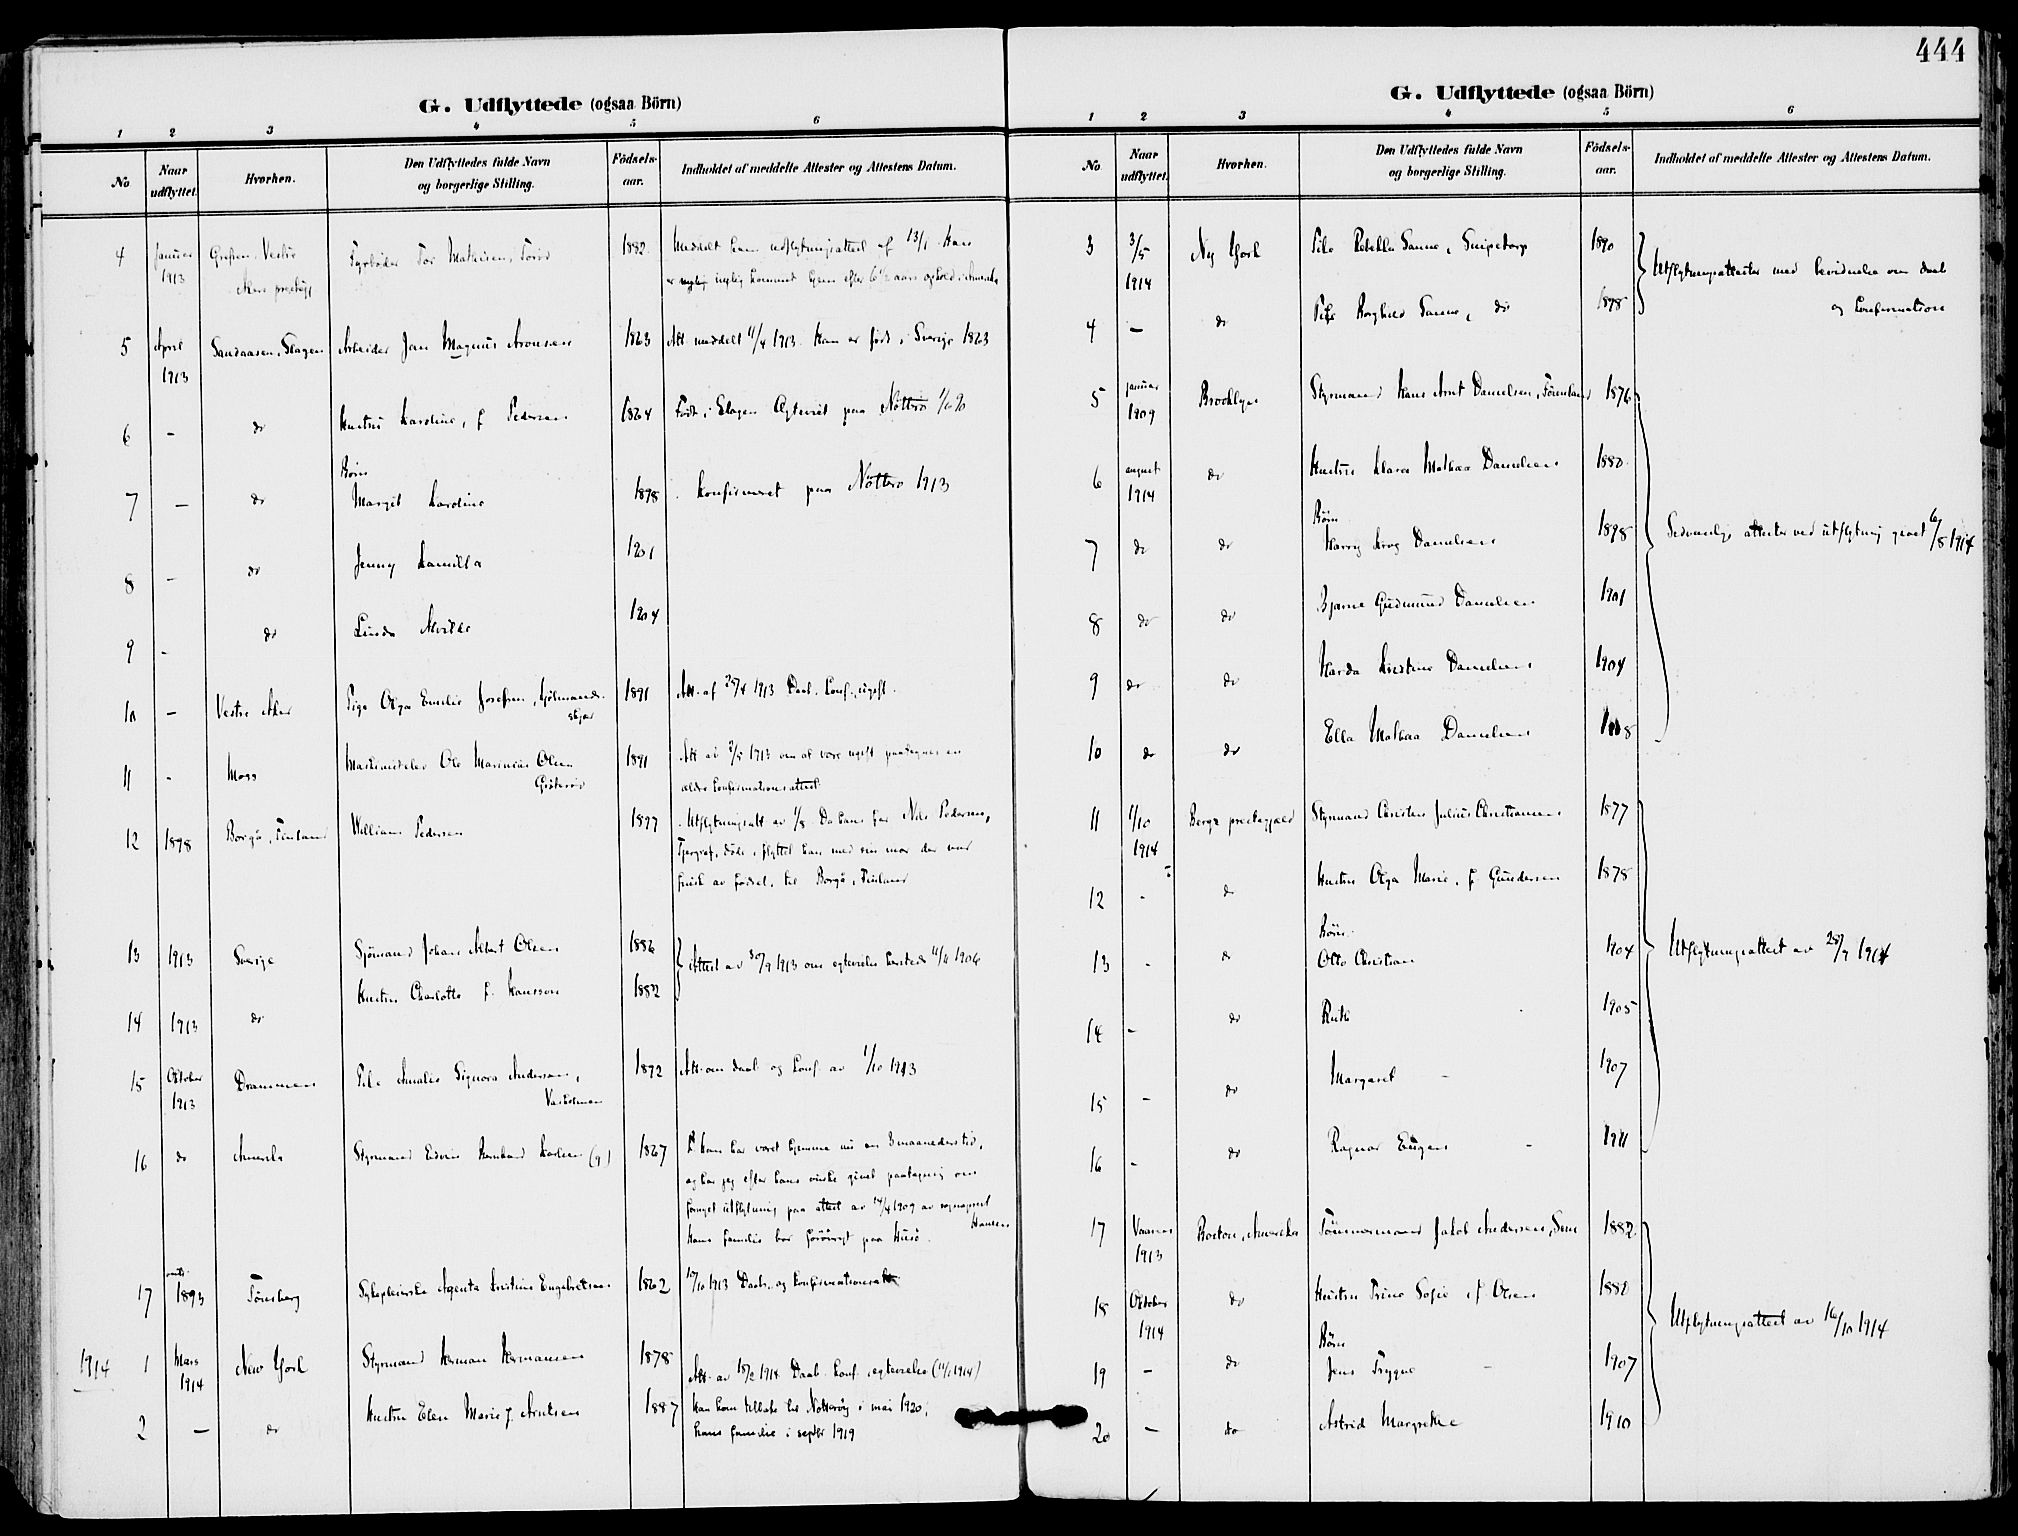 444
G. Udflyttede (ogsaa Börn)
1 2 3 4 5 6
No
Naar udflyttet.
Hvorhen.
Den Udflyttedes fulde Navn og borgerlige Stilling.
Födsels-aar.
Indholdet af meddelte Attester og Attestens Datum.
4 Januar 1913 Grefsen, Vestre Aker 1882 Meddelt ham udflytningsattest af 13/1. Han
er nylig kommet hjem efter 6 1/2 aars ophold i Amerika
5 April 1913 Sandaasen, Slagen Arbeider Jan Magnus Aronsen 1863 Att. meddelt 11/4 1913. Han er født i Sverige 1863
6 - do Hustru Karoline, f. Pedersen 1864 Født i Slagen Egteviet paa Nötterö
Börn
7 - do Margit Karoline 1898 Konfirmeret paa Nötterö 1913
8 - do Jenny Kamilla 1901
9 - do Linda Alvilde 1904
10 - Vestre Aker Pige Olga Emilie Josefsen, 1891 Att. af 25/4 1913 Daab. Konf., ugift.
11 - Moss Ole Marinius Olsen 1891 Att. av 2/5 1913 om at være ugift paategnes en
ældre konfirmationsattest
12 1898 Borgå, Finland William Pedersen 1897 Utflytningsatt. av 1/8. Da hans far Nils Pedersen,
døde, flyttet han med sin mor der var
finsk av fødsel, til Borgå, Finland
13 1913 Sverige Sjömand Johan Albert Olsen 1886 Attest av 30/9 1913 om egtevielse
14 1913 do Hustru Charlotte f. Hansson 1882
15 Oktober 1913 Drammen Pike Amalie Signora Andersen, 1892 Att. om daab og konf. av 1/10 1913
16 do Amerika Styrmand Edvin Bernhard Karlsen (g) 1867 han har været hjemme nu en 3 maaneders tid,
og har jeg efter hans ønske givet paategning om
fornyet utflytning paa attest av 14/4 1909 av sogneprest
Hansen
Hans familie bor paa Husö.
17 1893 Tönsberg Sykepleierske Agenta Kristine Engebretsen 1862 10/10 1913 Daabs- og konfirmationsatt.
1914 1 Mars 1914 New York Styrmand Herman Hermansen 1878 Att. av 18/2 1914. Daab. Konf. egtevielse (11/1 1914)
2 - do Hustru Elen Marie f. Arntsen 1887 Han kom tilbake til Nötteröy i mai 1920,
hans familie i septbr 1919
G. Udflyttede (ogsaa Börn)
1 2 3 4 5 6
No.
Naar udflyttet.
Hvorhen.
Den Udflyttedes fulde Navn og borgerlige Stilling.
Födsels-aar.
Indholdet af meddelte Attester og Attestens Datum.
3 3/5 1914 Ny York Pike Rebekka Sanne, Snipetorp 1890 Utflytningsattester med bevidnelse om daab
og konfirmation
4 - do Pike Borghild Sanne, do 1898
5 Januar 1909 Brooklyn Styrmand Hans Arnt Danielsen, 1876
6 august 1914 do Hustru Klara Mathea Danielsen 1880
Börn
7 do do Harry Krog Danielsen 1898 Sedvanlige attester ved utflytning givet 6/8 1914
8 do do Bjarne Gudmund Danielsen 1901
9 do do Harda Kristine Danielsen 1904
10 do do Ella Mathea Danielsen 1908
11 1/10 1914 Berge prestegjeld Styrmand Christen Julius Christiansen 1877
12 - do Hustru Olga Marie, f. Gundersen 1878
Börn
13 - do Otto Christian 1904 Utflytningsattest av 28/9 1914
14 - do Ruth 1905
15 - do Margaret 1907
16 - do Ragnar Eugen 1911
17 Vaaren 1913 Boston, Amerika Tömmermand Jakob Andersen, 1882
18 Oktober 1914 do Hustru Trine Sofie f. Olsen 1880
Börn Utflytningsattest av 16/10 1914
19 - do Jens Trygve 1907
20 - do Astrid Margrethe 1910